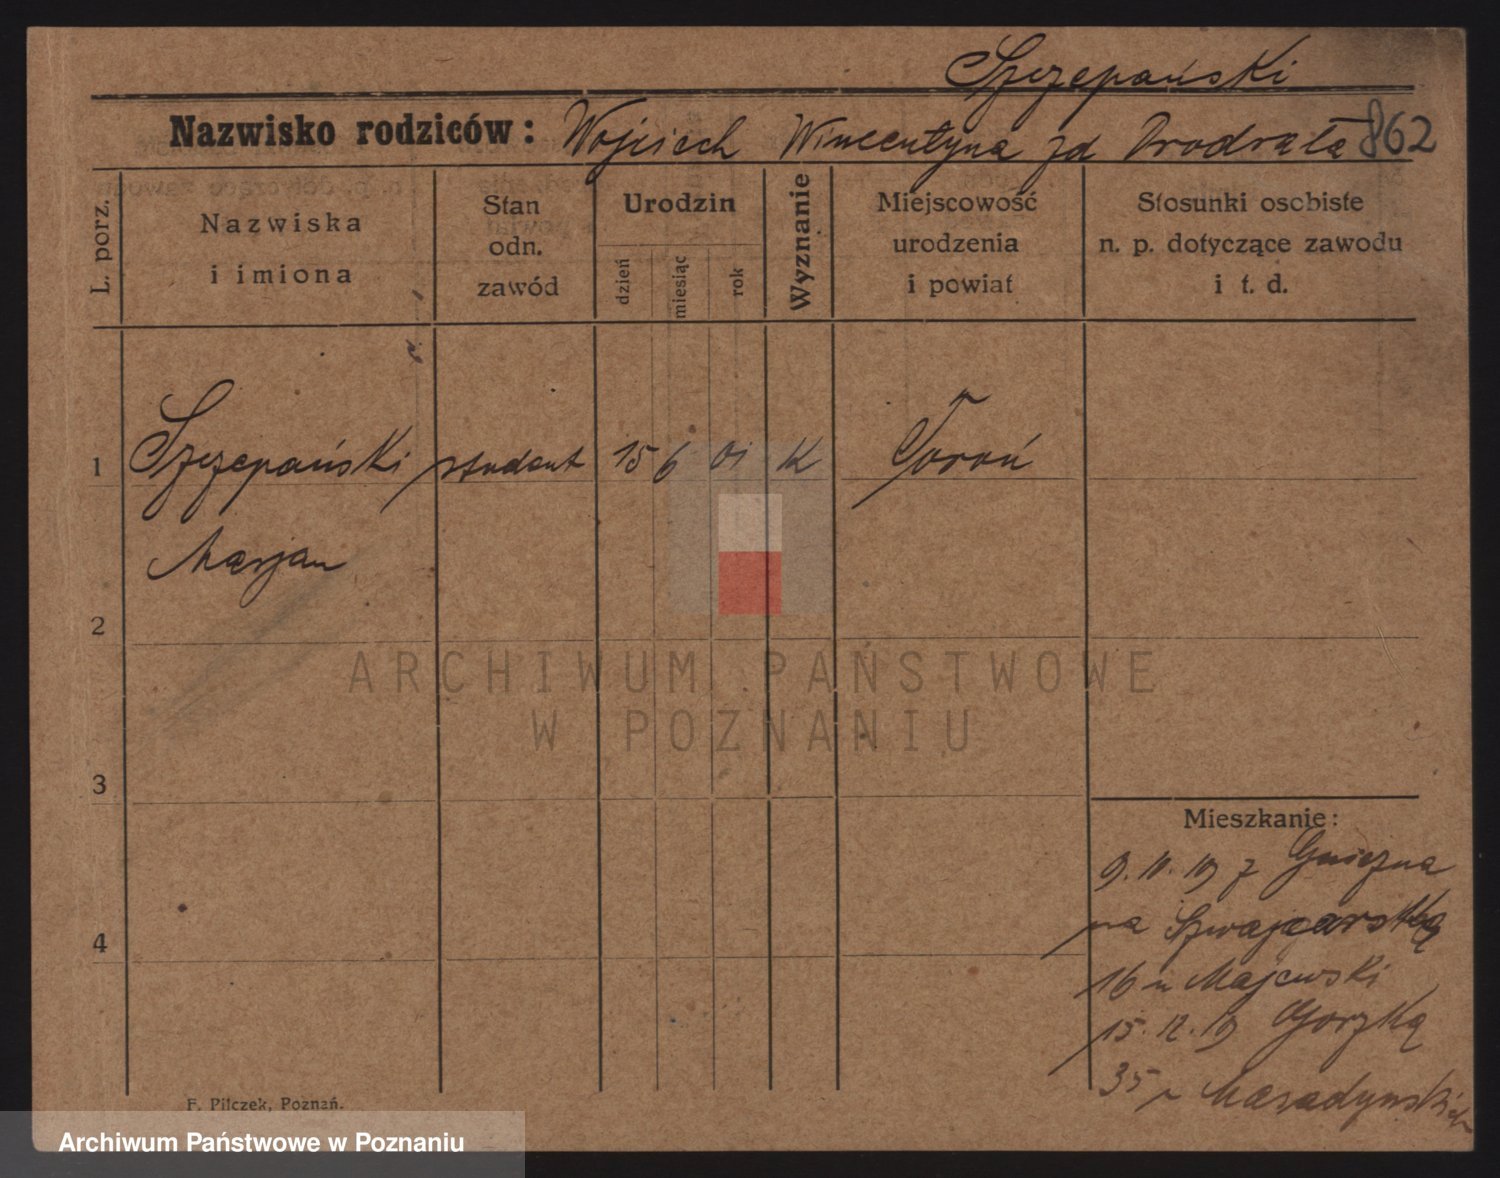 Szczepański
Nazwisko rodziców: Wojciech Wincentyna zd 862
L. porz.
Nazwiska
i imiona
Stan
odn.
zawód
Urodzin
dzień
miesiąc
rok
Wyznanie
Miejscowość
urodzenia
i powiat
Stosunki osobiste
n. p. dotyczące zawodu
i t. d.
1 Szczepański student 15 6 01 K Toruń
Marjan
2
3
4
Mieszkanie:
9.11.19 z Gniezna
na Szwajcarską
16 u Majewski
15.12.19 Gorzką
35
F. Pilczek, Poznań.
ARCHIWUM PAŃSTWOWE
W POZNANIU
Archiwum Państwowe w Poznaniu